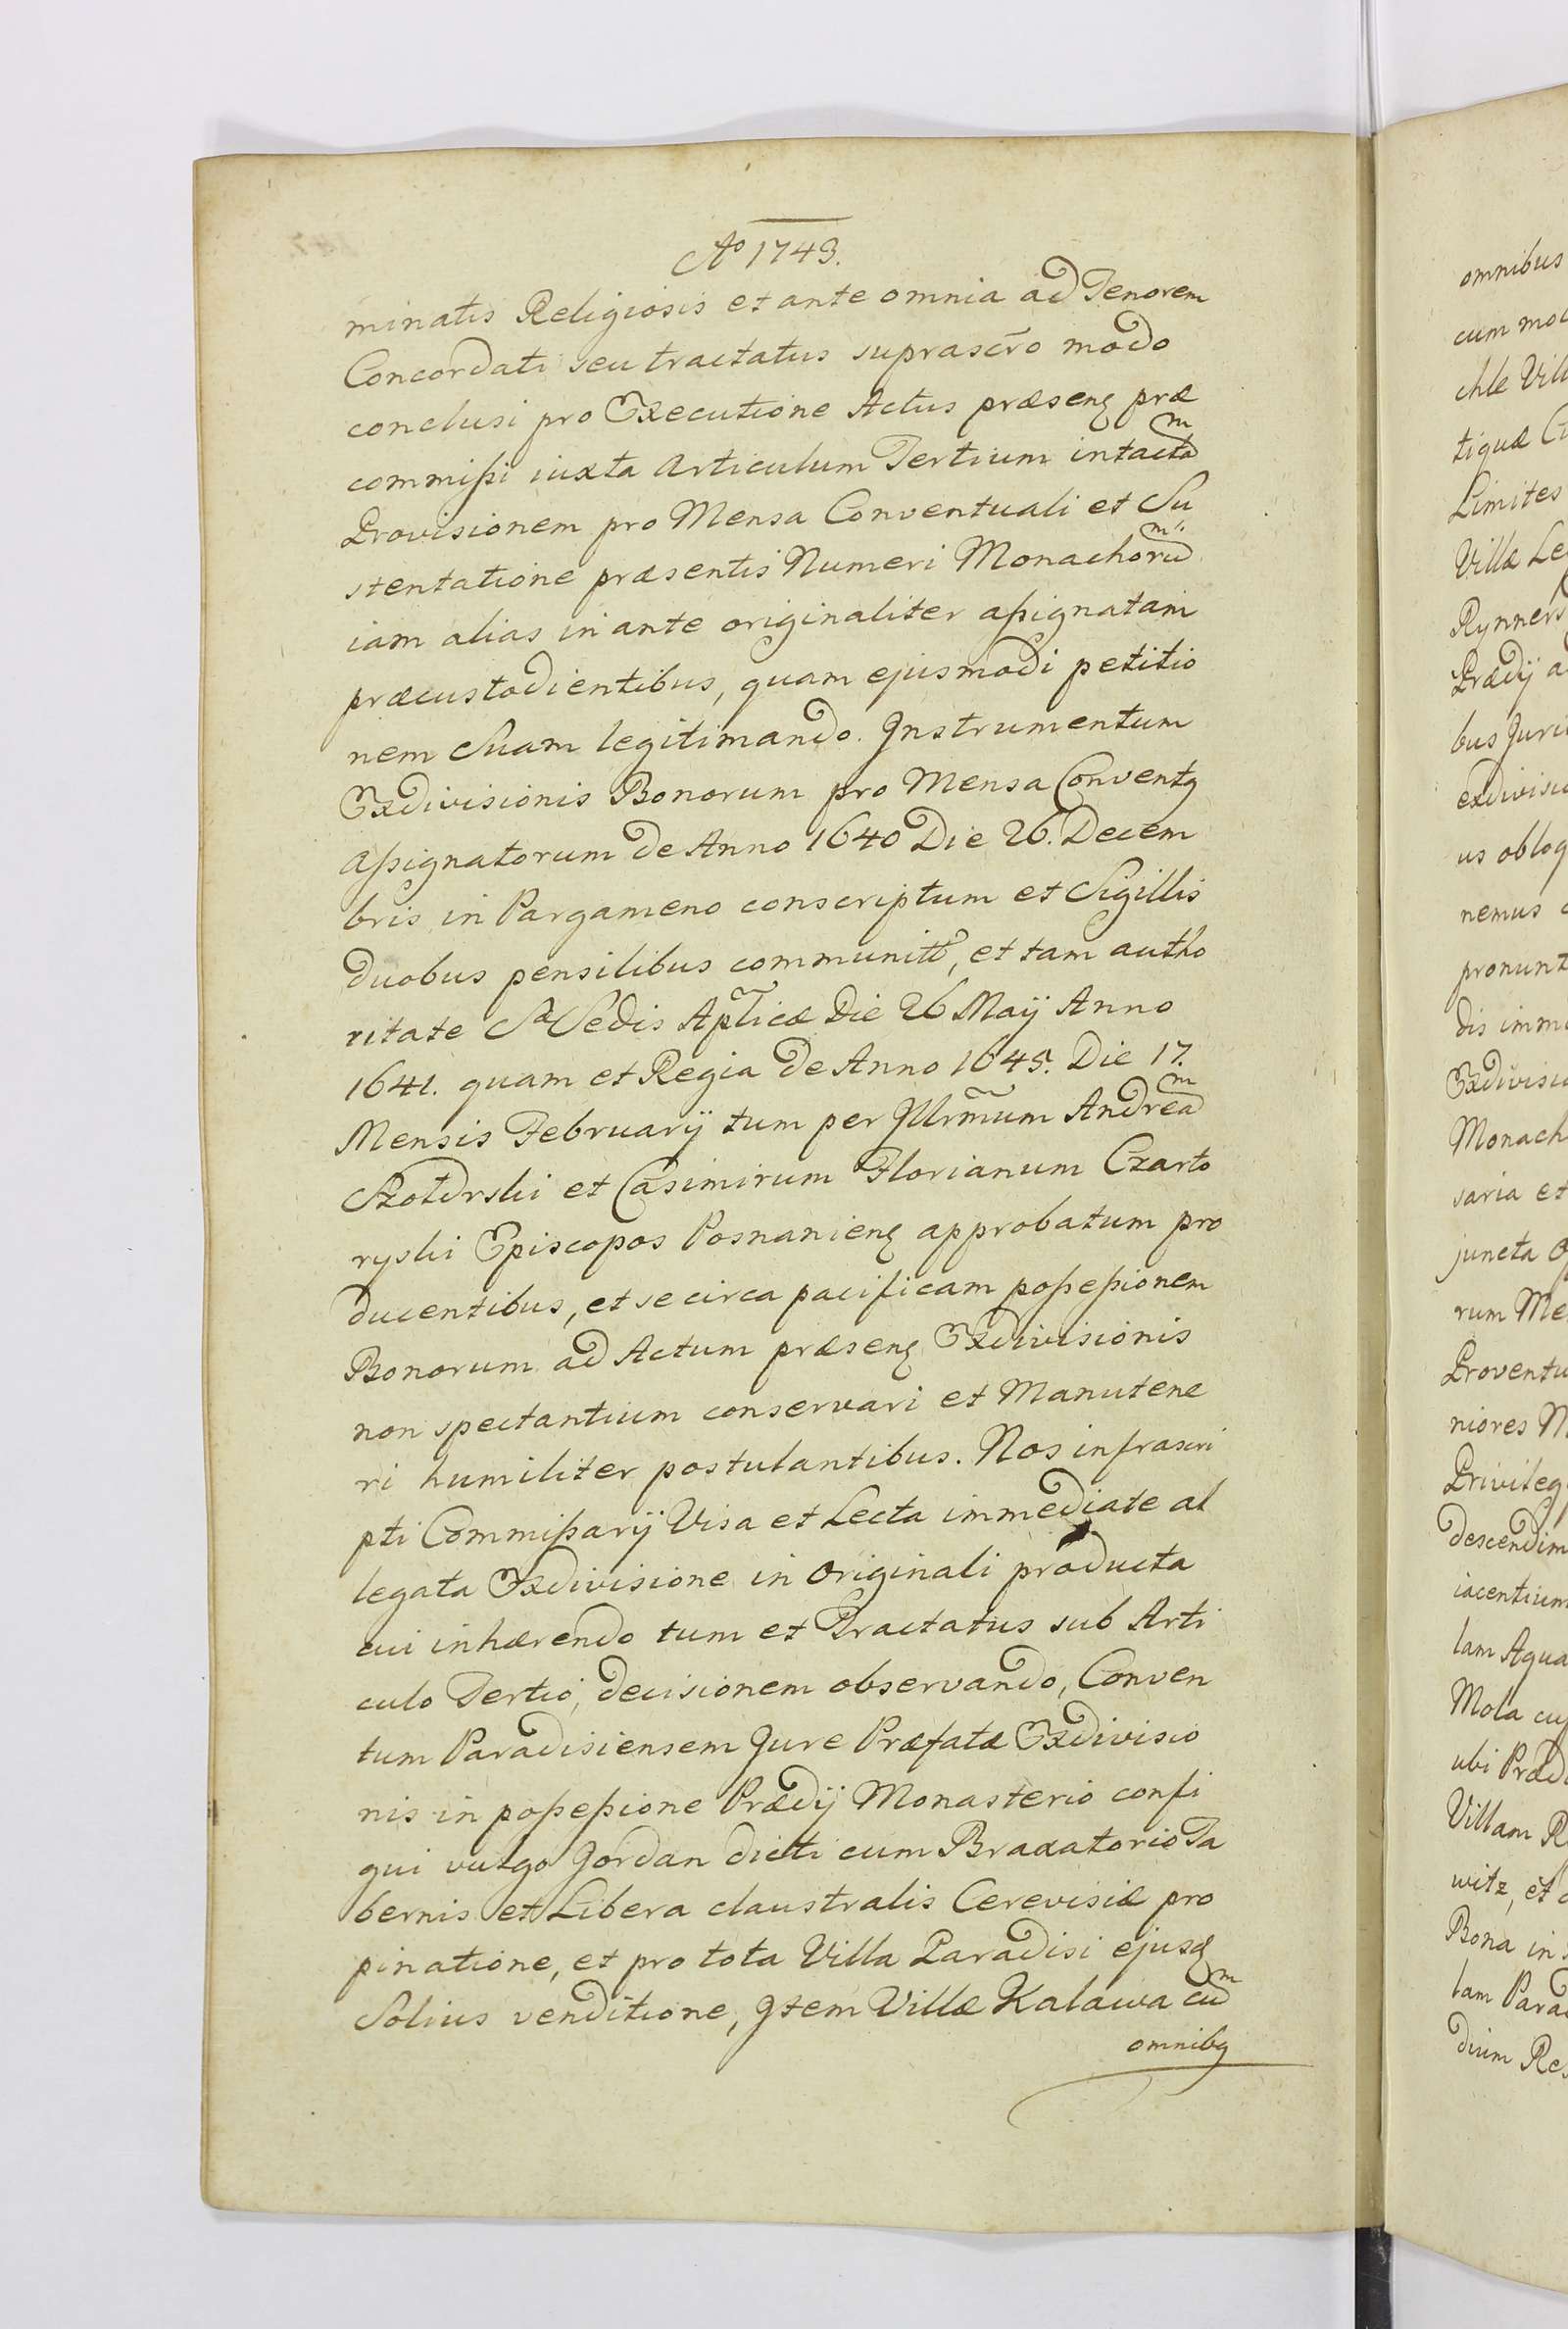 Ao 1743.
minatis Religiosis et ante omnia ad Tenorem
Concordati seu tractatus suprascr̃o modo
conclusi pro Executione Actus præsenꝫ præ
commißi iuxta Articulum Tertium intactaᵐ
Provisionem pro Mensa Conventuali et Su
stentatione præsentis Numeri Monachoruᵐ
iam alias in ante originaliter aßignatam
præcustodientibus, quam ejusmodi petitio
nem Suam legitimando. Instrumentum
Exdivisionis Bonorum pro Mensa Conventꝫ
aßignatorum de Anno 1640 Die 26. Decem
bris in Pargameno conscriptum et Sigillis
duobus pensilibus communitũ, et tam autho
ritate Sæ Sedis Aplicæ Die 26 Maÿ Anno
1641. quam et Regia de Anno 1645. Die 17.
Mensis Februarÿ tum per Illrm̃um Andreaᵐ
Szołdrski et Casimirum Florianum Czarto
ryski Episcopos Posnanienꝫ approbatum pro
ducentibus, et se circa pacificam poßeßionem
Bonorum ad Actum præsenꝫ Exdivisionis
non spectantium conservari et Manutene
ri humiliter postulantibus. Nos infrascri
pti Commißarÿ Visa et Lecta immediate al
legata Exdivisione in Originali producta
cui inhærendo tum et Tractatus sub Arti
culo Tertio, decisionem observando, Conven
tum Paradisiensem Jure Præfatæ Exdivisio
nis in poßeßione Prædÿ Monasterio confi
gui vulgo Jordan dicti cum Braxatorio Ta
bernis et Libera claustralis Cerevisiæ pro
pinatione, et pro tota Villa Paradisi ejusꝗ
Solius venditione, Item Villæ Kalawa cuᵐ
omnibꝫ
omnibus
cum mol
chle Vill
tiquæ
Limites
Villæ Le
Rynners
Prædÿ a
bus Juri
exdivisio
us obloq
nemus
pronunt
dis imm
Exdivisi
Monach
saria et
juncta
rum Me
Proventu
niores M
Privileg
descendim
iacentium
lam Aqua
Mola cu
ubi Præd
Villam R
witz, et
Bona in
lam Para
dium Re